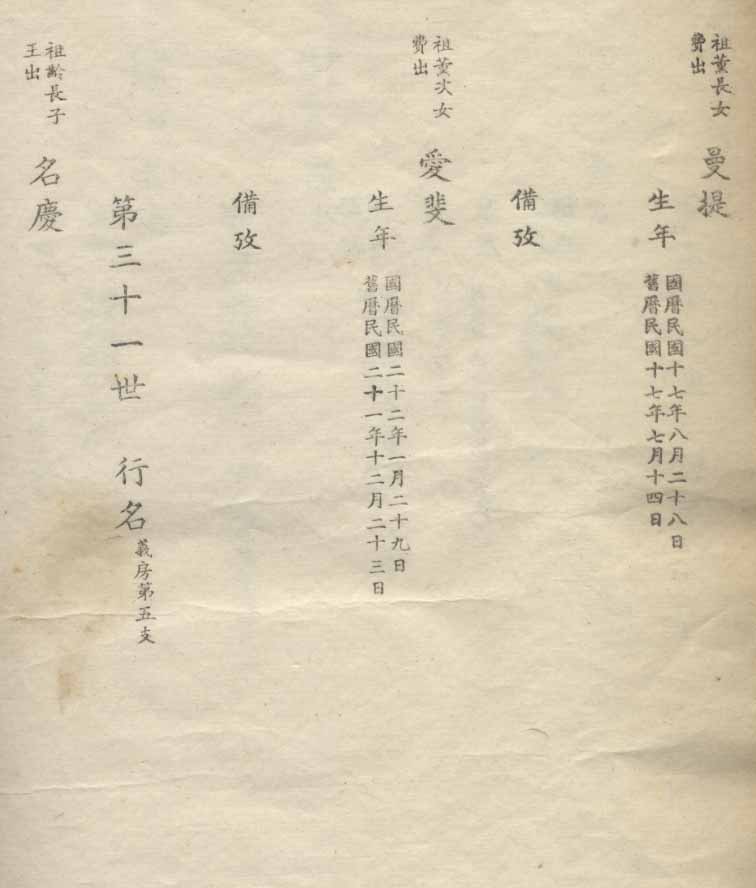 祖薰長女
費出
曼提
生年
國曆民國十七年八月二十八日
舊曆民國十七年七月十四日
備攷
祖薰次女
費出
愛斐
生年
國曆民國二十二年一月二十九日
舊曆民國二十一年十二月二十三日
備攷
第三十一世 行名 義房第五支
祖齡長子
王出
名慶